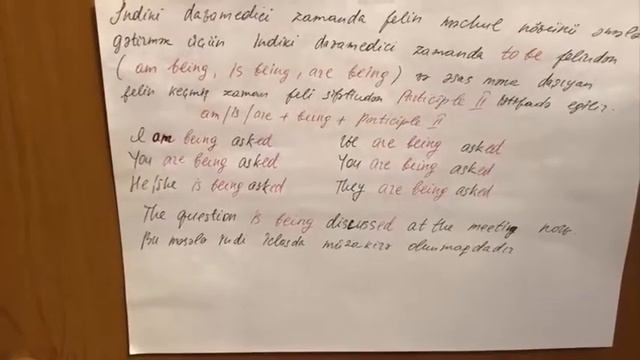 İndiki davamedici zamanda felin məchul növünü əmələ
gətirmək üçün İndiki davamedici zamanda to be felindən
(am being, is being, are being) və əsas məna daşıyan
felin keçmiş zaman feli sifətindən Participle II istifadə edilir.
am/is/are + being + Participle II
I am being asked We are being asked
You are being asked You are being asked
He/she is being asked They are being asked
The question is being discussed at the meeting now.
Bu məsələ indi iclasda müzakirə olunmaqdadır